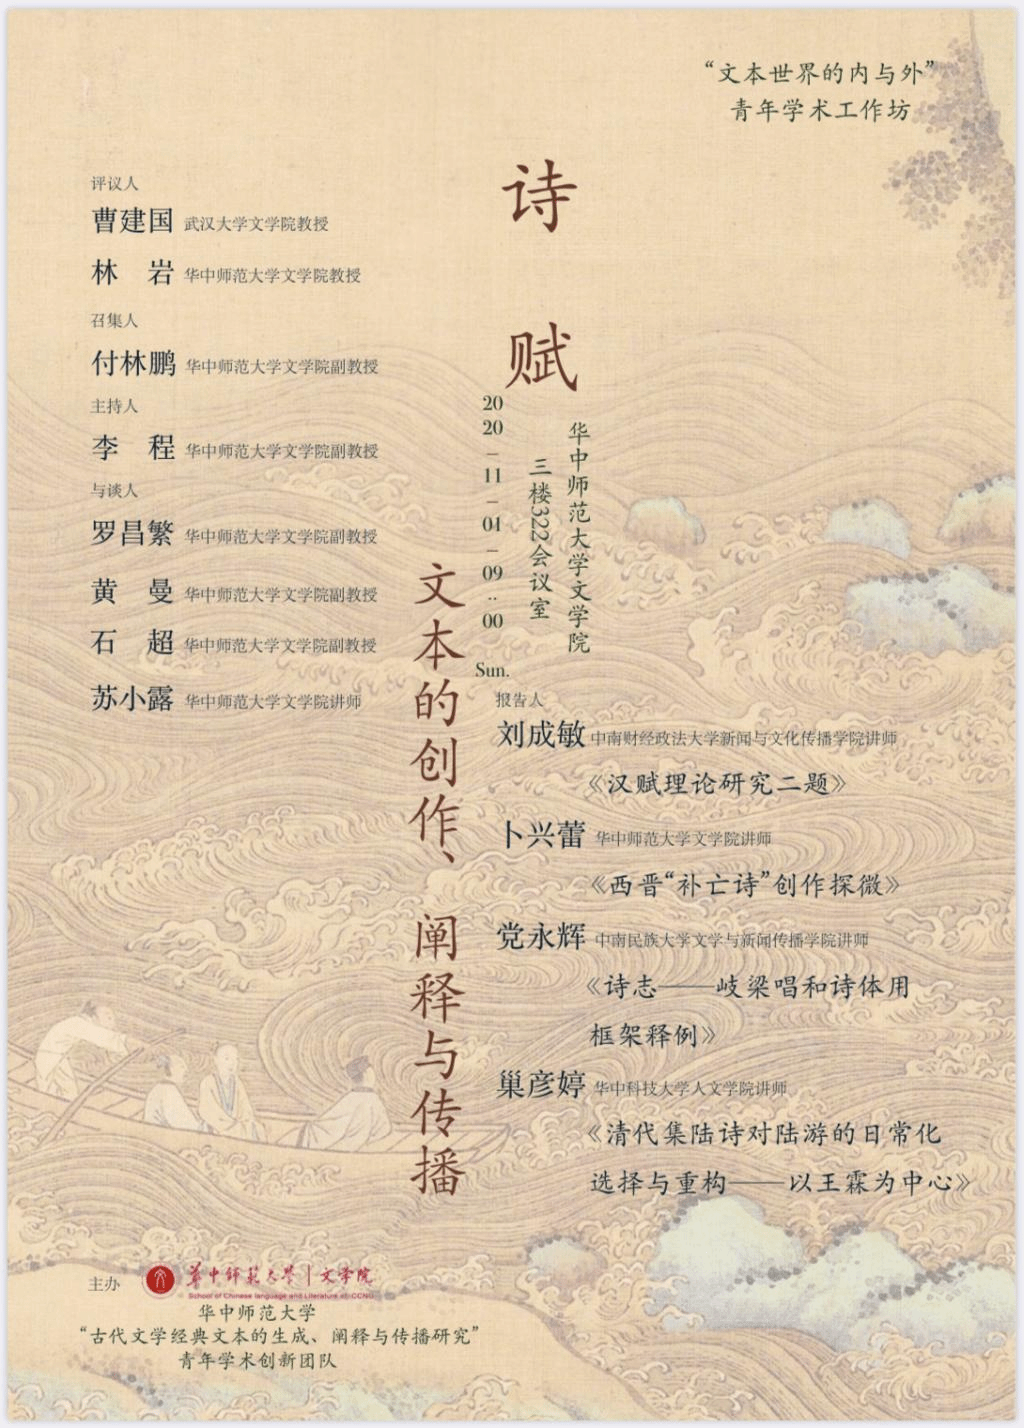 “文本世界的内与外”
青年学术工作坊
诗赋
文本的创作、阐释与传播
2020-11-01-09:00
Sun.
华中师范大学文学院
三楼322会议室
评议人
曹建国 武汉大学文学院教授
林 岩 华中师范大学文学院教授
召集人
付林鹏 华中师范大学文学院副教授
主持人
李 程 华中师范大学文学院副教授
与谈人
罗昌繁 华中师范大学文学院副教授
黄 曼 华中师范大学文学院副教授
石 超 华中师范大学文学院副教授
苏小露 华中师范大学文学院讲师
报告人
刘成敏 中南财经政法大学新闻与文化传播学院讲师
《汉赋理论研究二题》
卜兴蕾 华中师范大学文学院讲师
《西晋“补亡诗”创作探微》
党永辉 中南民族大学文学与新闻传播学院讲师
《诗志——岐梁唱和诗体用
框架释例》
巢彦婷 华中科技大学人文学院讲师
《清代集陆诗对陆游的日常化
选择与重构——以王霖为中心》
主办
華中師範大學|文学院
School of Chinese language and Literature of CCNU
华中师范大学
“古代文学经典文本的生成、阐释与传播研究”
青年学术创新团队